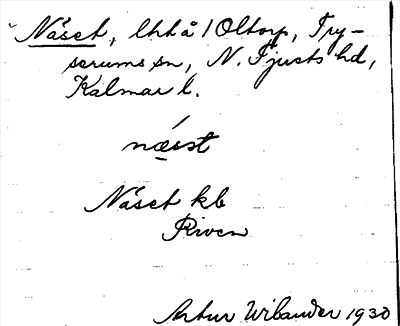 Näset, lht å 1 Oltorp, Try-
serums sn, N. Tjusts hd,
Kalmar l.
næ̀st
Näset kb
Riven
Artur Wilander 1930